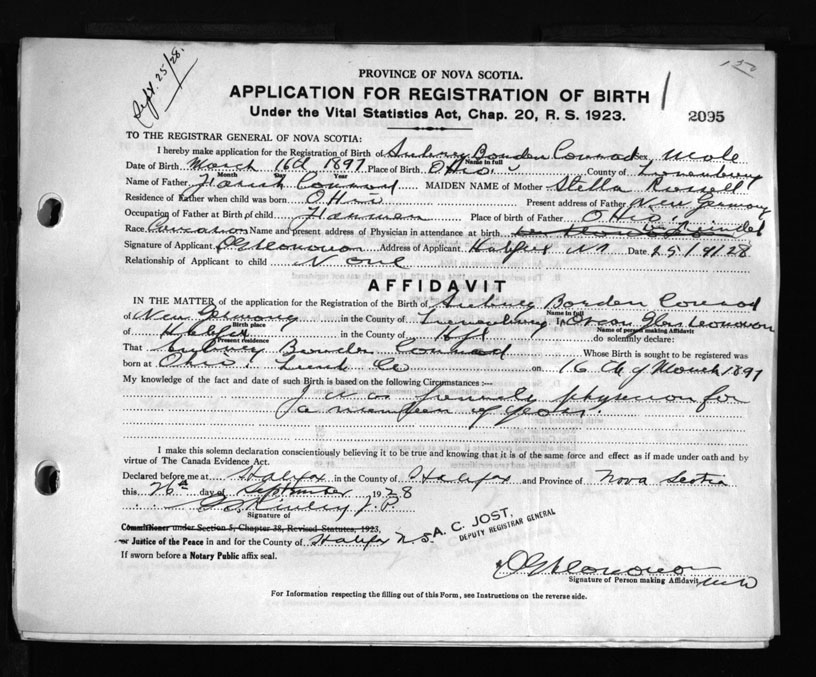 Sept. 25/28.
150
PROVINCE OF NOVA SCOTIA.
APPLICATION FOR REGISTRATION OF BIRTH
Under the Vital Statistics Act, Chap. 20, R. S. 1923.
2095
TO THE REGISTRAR GENERAL OF NOVA SCOTIA:
I hereby make application for the Registration of Birth of Aubrey Borden Conrad Sex, Male
Name in full
Date of Birth March 16th 1897 Place of Birth Ohio County of Lunenburg
Month Day Year
Name of Father Conrad MAIDEN NAME of Mother Stella Russell
Residence of Father when child was born Ohio Present address of Father New Germany
Occupation of Father at Birth of child Place of birth of Father Ohio
Race Name and present address of Physician in attendance at birth
Signature of Applicant Address of Applicant Halifax NS Date 25/9/28
Relationship of Applicant to child None
AFFIDAVIT
IN THE MATTER of the application for the Registration of the Birth of Aubrey Borden Conrad
Name in full
of New Germany in the County of Lunenburg I,
Birth place Name of person making Affidavit
of Halifax in the County of Hfx do solemnly declare:
Present residence
That Aubrey Borden Conrad Whose Birth is sought to be registered was
born at Ohio, Lunb Co on 16th of March 1897
My knowledge of the fact and date of such Birth is based on the following Circumstances:—
I was family physician for
a number of years.
I make this solemn declaration conscientiously believing it to be true and knowing that it is of the same force and effect as if made under oath and by
virtue of The Canada Evidence Act.
Declared before me at Halifax in the County of Halifax and Province of Nova Scotia
this 26th day of September 1928
J.P.
Signature of
Commissioner under Section 5, Chapter 38, Revised Statutes, 1923,
or Justice of the Peace in and for the County of Halifax N.S.
A. C. JOST,
DEPUTY REGISTRAR GENERAL
If sworn before a Notary Public affix seal.
Signature of Person making Affidavit
For Information respecting the filling out of this Form, see Instructions on the reverse side.